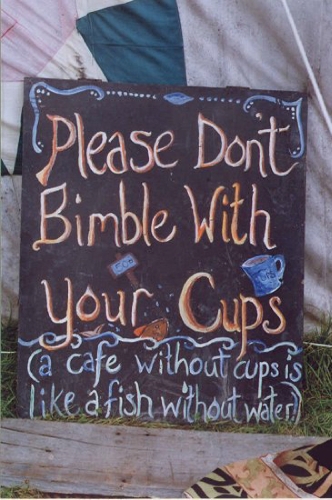 Please Don't
Bimble With
your Cups
(a cafe without cups is
like a fish without water)